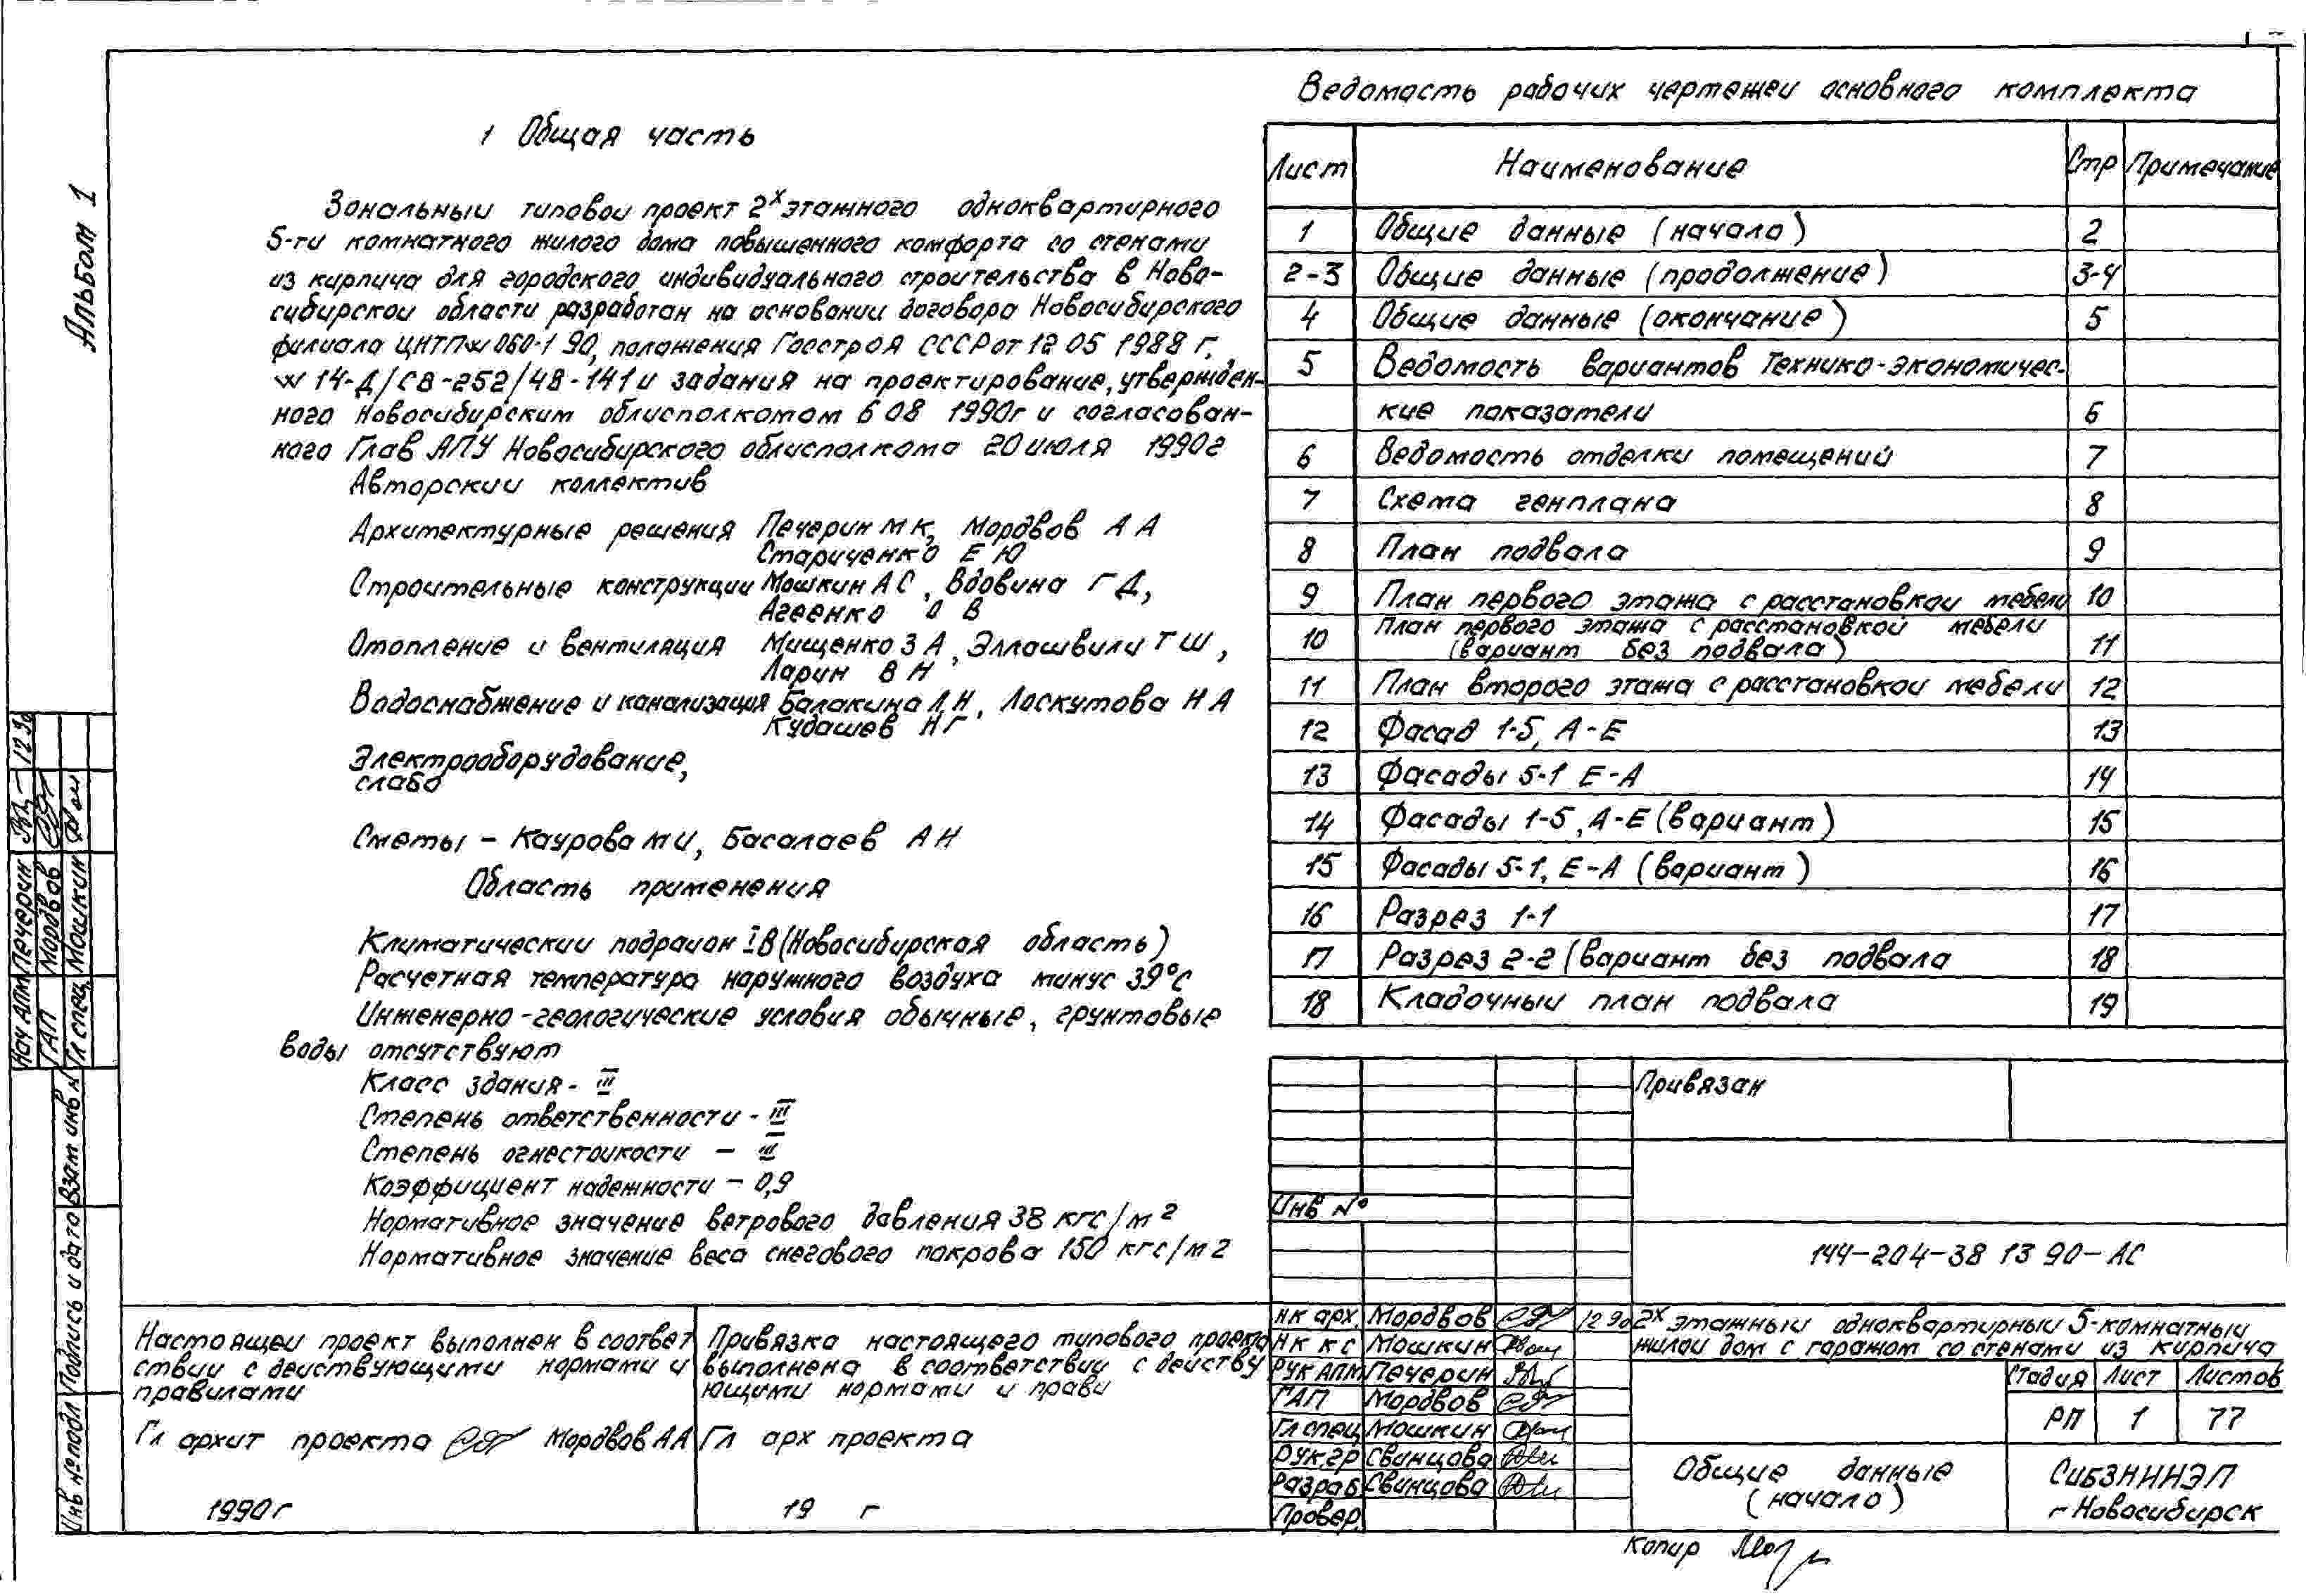 Альбом 1
1 Общая часть
Зональныи типовои проект 2х этажного одноквартирного
5-ти комнатного жилого дома повышенного комфорта со стенами
из кирпича для городского индивидуального строительства в Ново-
сибирскои области разработан на основании договора Новосибирского
филиала ЦИТП № 060-1 90, положения Госстроя СССР от 12 05 1988 г.,
№ 14-Д/СВ-252/48-141 и задания на проектирование, утвержден-
ного Новосибирским облисполкомом 6 08 1990г и согласован-
ного Глав АПУ Новосибирского облисполкома 20 июля 1990г
Авторскии коллектив
Архитектурные решения Печерин М К, Мордвов А А
Стариченко Е Ю
Строительные конструкции Мошкин А С, Вдовина Г Д,
Агеенко О В
Отопление и вентиляция Мищенко З А, Эллошвили Т Ш,
Ларин В Н
Водоснабжение и канализация Балакина Л Н, Лоскутова Н А
Кудашев Н Г
Электрооборудование,
слабо
Сметы - Каурова М И, Басалаев А Н
Область применения
Климатическии подраион IВ (Новосибирская область)
Расчетная температура наружного воздуха минус 39°С
Инженерно-геологические условия обычные, грунтовые
воды отсутствуют
Класс здания - III
Степень ответственности - III
Степень огнестоикости - III
Коэффициент надежности - 0,9
Нормативное значение ветрового давления 38 кгс/м2
Нормативное значение веса снегового покрова 150 кгс/м2
Ведомость рабочих чертежеи основного комплекта
Лист Наименование Стр Примечание
1 Общие данные (начало) 2
2-3 Общие данные (продолжение) 3-4
4 Общие данные (окончание) 5
5 Ведомость вариантов Технико-экономичес-
кие показатели 6
6 Ведомость отделки помещений 7
7 Схема генплана 8
8 План подвала 9
9 План первого этажа с расстановкои мебели 10
10 План первого этажа с расстановкои мебели
(вариант без подвала) 11
11 План второго этажа с расстановкои мебели 12
12 Фасад 1-5, А-Е 13
13 Фасады 5-1 Е-А 14
14 Фасады 1-5, А-Е (вариант) 15
15 Фасады 5-1, Е-А (вариант) 16
16 Разрез 1-1 17
17 Разрез 2-2 (вариант без подвала 18
18 Кладочныи план подвала 19
Привязан
Инв №
144-204-38 13 90-АС
Н К арх. Мордвов 12 90
Н К К С Мошкин
Рук АПМ Печерин
ГАП Мордвов
Гл спец Мошкин
Рук.гр Свинцова
Разраб. Свинцова
Провер.
2х этажныи одноквартирныи 5-комнатныи
жилои дом с гаражом со стенами из кирпича
Стадия Лист Листов
РП 1 77
Общие данные
(начало)
СибЗНИИЭП
г Новосибирск
Копир
Настоящеи проект выполнен в соответ
ствии с деиствующими нормами и
правилами
Гл архит проекта Мордвов А А
1990г
Привязка настоящего типового проекта
выполнена в соответствии с деиству
ющими нормами и прави
Гл арх проекта
19 г
Нач АПМ Печерин 12 90
ГАП Мордвов
Гл спец Мошкин
Взам инв №
Подпись и дата
Инв № подл